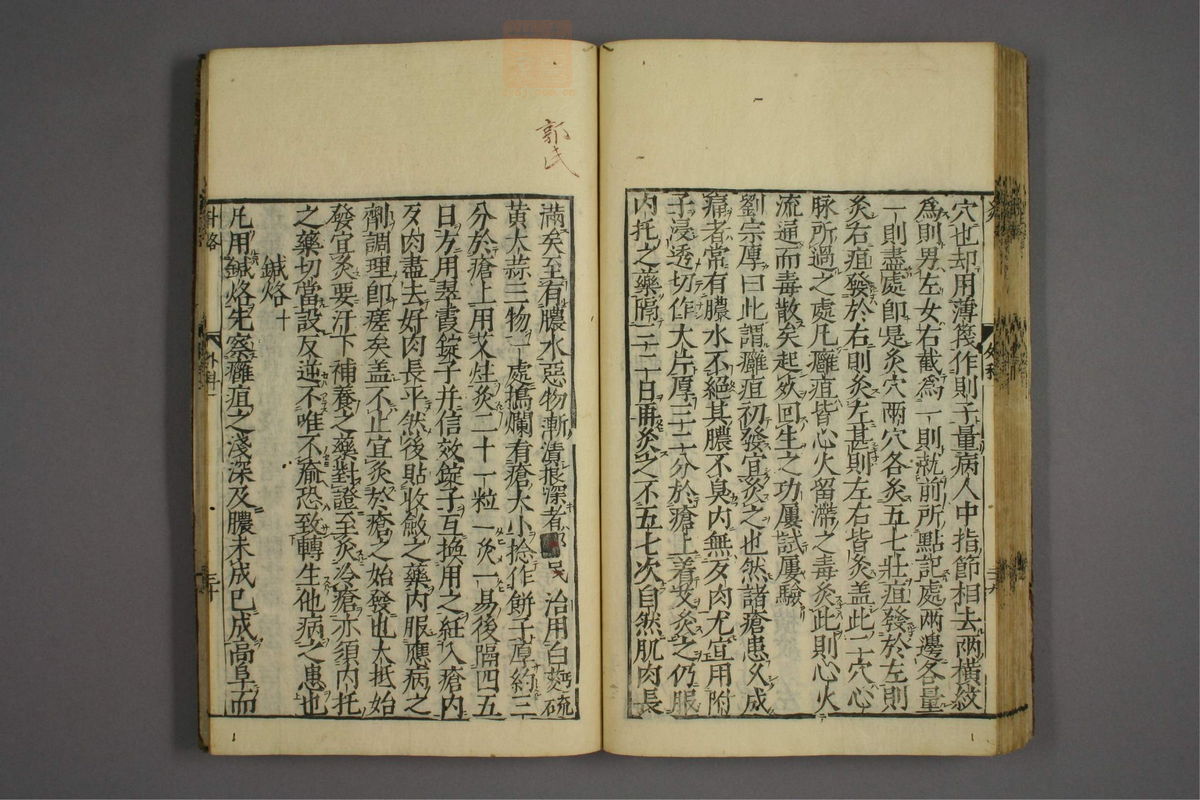 穴也却用薄篾作則子量病人中指節相去兩橫紋
爲則男左女右截爲一則執前所點記處兩邊各量
一則盡處即是灸穴兩穴各灸五七壯疽發於左則
灸右疽發於右則灸左甚則左右皆灸盖此二穴心
脉所過之處凡癰疽皆心火留滯之毒灸此則心火
流通而毒散矣起效回生之功屢試屢驗
劉宗厚曰此謂癰疽初發宜灸之也然諸瘡患久成
痼者常有膿水不絕其膿不臭內無歹肉尤宜用附
子浸透切作大片厚三二分於瘡上着艾灸之仍服
內托之藥隔三二日再灸之不五七次自然肌肉長
滿矣至有膿水惡物漸漬根深者 氏 治用白麪硫
黃大蒜三物一處搗爛有瘡大小捻作餅子厚約三
分於瘡上用艾炷灸二十一粒一灸一易後隔四五
日方用翠霞錠子并信效錠子互換用之紝入瘡內
歹肉盡去好肉長平然後貼收斂之藥內服應病之
劑調理即瘥矣盖不止宜灸於瘡之始發也大抵始
發宜灸要汗下補養之藥對證至灸冷瘡亦須內托
之藥切當設反逆不唯不瘉恐致轉生他病之患也
鍼烙十
凡用鍼烙先察癰疽之淺深及膿未成已成高阜而
郭氏
外科